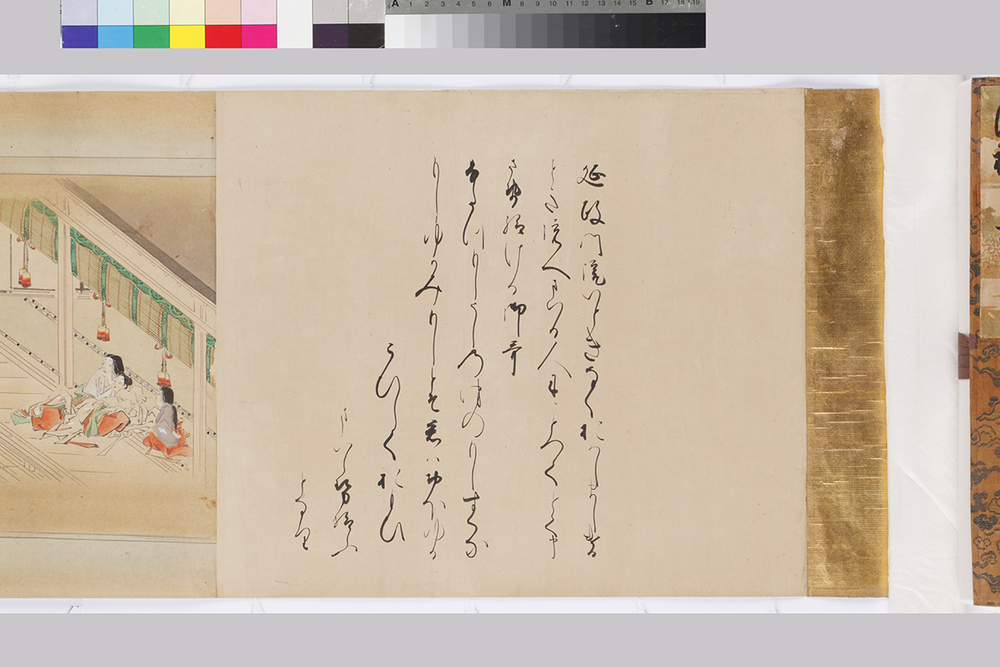 延政門院いときなくおはしましける
とき院へまいる人に御ことつてとて申
させ給ける御哥
ふたつもしうしのつのもしすくな
もしゆかみもしとそ君はおほゆる
こひしくおもひ
まいらせ給ふ
となり
A 1 2 3 4 5 6 M 8 9 10 11 12 13 14 15 B 17 18 19